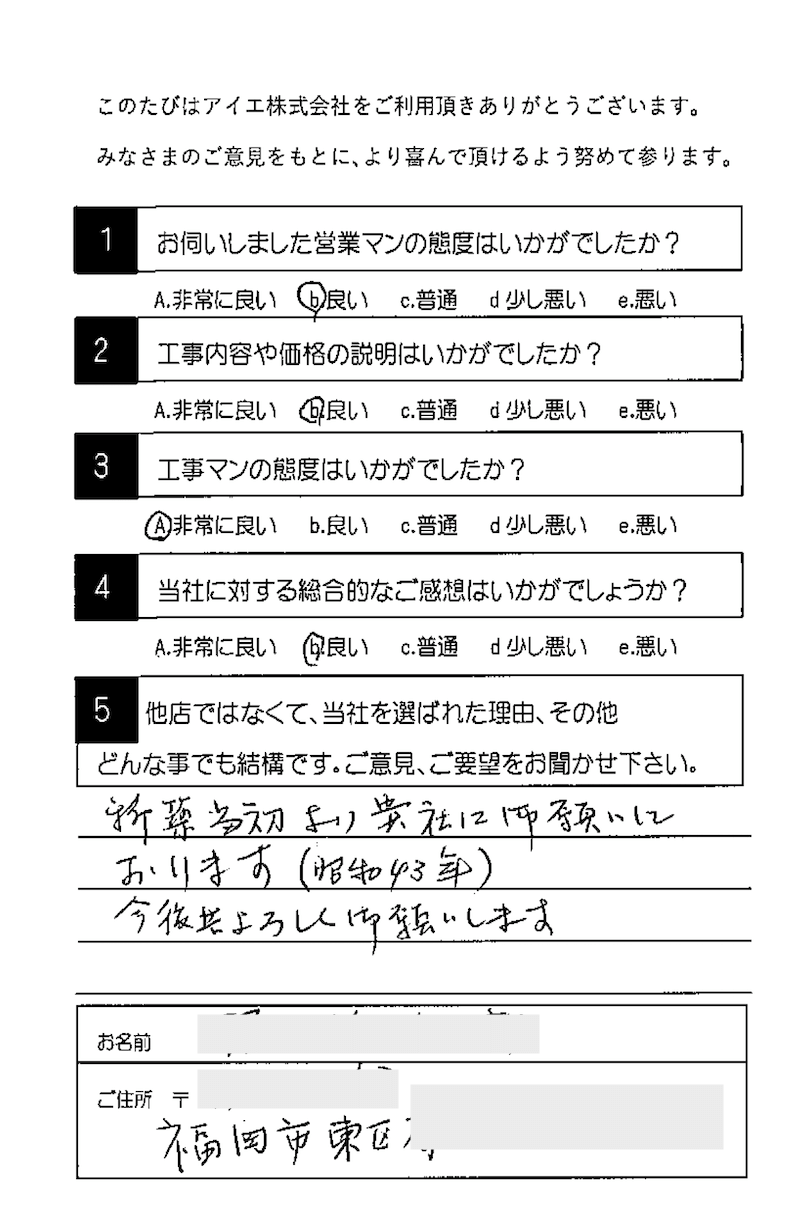 このたびはアイエ株式会社をご利用頂きありがとうございます。
みなさまのご意見をもとに、より喜んで頂けるよう努めて参ります。
1 お伺いしました営業マンの態度はいかがでしたか？
A.非常に良い b.良い c.普通 d 少し悪い e.悪い
2 工事内容や価格の説明はいかがでしたか？
A.非常に良い b.良い c.普通 d 少し悪い e.悪い
3 工事マンの態度はいかがでしたか？
A.非常に良い b.良い c.普通 d 少し悪い e.悪い
4 当社に対する総合的なご感想はいかがでしょうか？
A.非常に良い b.良い c.普通 d 少し悪い e.悪い
5 他店ではなくて、当社を選ばれた理由、その他
どんな事でも結構です。ご意見、ご要望をお聞かせ下さい。
新築当初より貴社に御願いして
おります(昭和43年)
今後共よろしく御願いします
お名前
ご住所 〒
福岡市東区